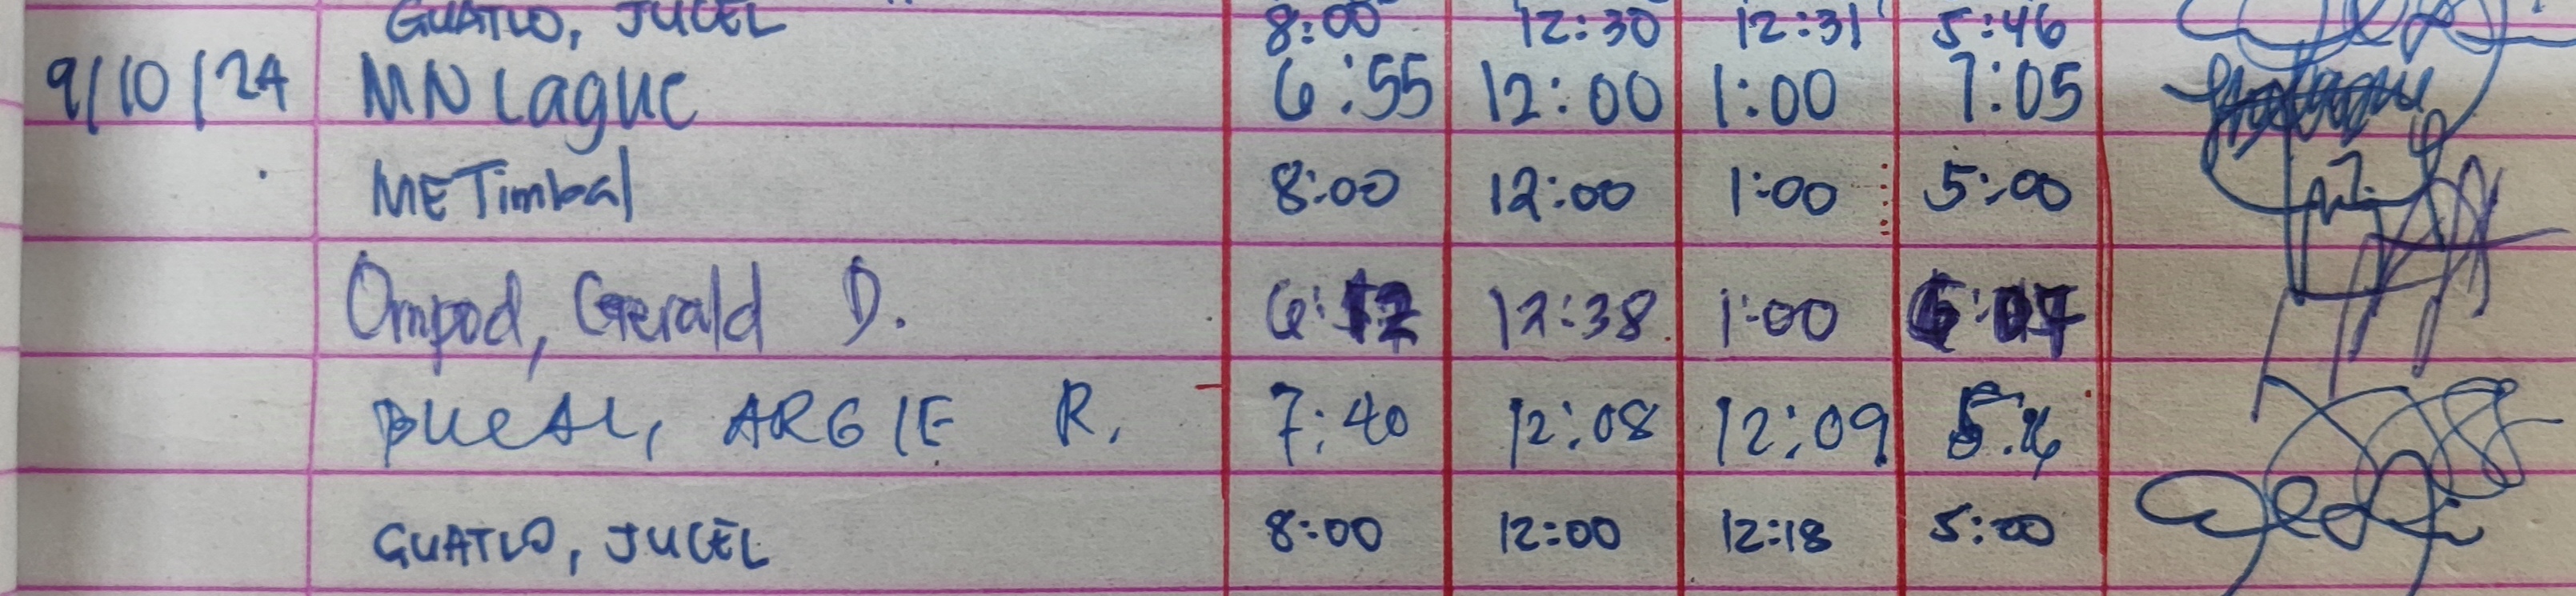 GUATLO, JUCEL 8:00 12:30 12:31 5:46
9/10/24 MN Lague 6:55 12:00 1:00 7:05
ME Timbal 8:00 12:00 1:00 5:00
Ompod, Gerald D. 12:38 1:00
ARGIE R. 7:40 12:08 12:09
GUATLO, JUCEL 8:00 12:00 12:18 5:00